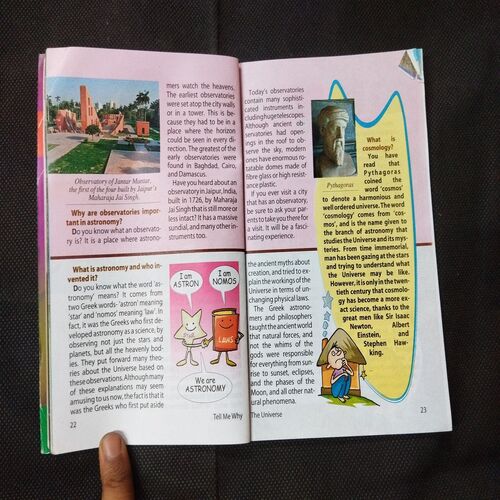 Observatory of Jantar Mantar,
the first of the four built by Jaipur's
Maharaja Jai Singh.
Why are observatories impor-
tant in astronomy?
Do you know what an observato-
ry is? It is a place where astrono-
mers watch the heavens.
The earliest observatories
were set atop the city walls
or in a tower. This is be-
cause they had to be in a
place where the horizon
could be seen in every di-
rection. The greatest of the
early observatories were
found in Baghdad, Cairo,
and Damascus.
Have you heard about an
observatory in Jaipur, India,
built in 1726, by Maharaja
Jai Singh that is still more or
less intact? It has a massive
sundial, and many other in-
struments too.
What is astronomy and who in-
vented it?
Do you know what the word 'as-
tronomy' means? It comes from
two Greek words- 'astron' meaning
'star' and 'nomos' meaning 'law'. In
fact, it was the Greeks who first de-
veloped astronomy as a science, by
observing not just the stars and
planets, but all the heavenly bod-
ies. They put forward many theo-
ries about the Universe based on
these observations. Although many
of these explanations may seem
amusing to us now, the fact is that it
was the Greeks who first put aside
I am
ASTRON
I am
NOMOS
LAWS
We are
ASTRONOMY
22
Tell Me Why
Today's observatories
contain many sophisti-
cated instruments in-
cluding huge telescopes.
Although ancient ob-
servatories had open-
ings in the roof to ob-
serve the sky, modern
ones have enormous ro-
tatable domes made of
fibre glass or high resist-
ance plastic.
If you ever visit a city
that has an observatory,
be sure to ask your par-
ents to take you there for
a visit. It will be a fasci-
nating experience.
the ancient myths about
creation, and tried to ex-
plain the workings of the
Universe in terms of un-
changing physical laws.
The Greek astrono-
mers and philosophers
taught the ancient world
that natural forces, and
not the whims of the
gods were responsible
for everything from sun-
rise to sunset, eclipses,
and the phases of the
Moon, and all other nat-
ural phenomena.
Pythagoras
What is
cosmology?
You have
read that
Pythagoras
coined the
word 'cosmos'
to denote a harmonious and
well ordered universe. The word
'cosmology' comes from 'cos-
mos', and is the name given to
the branch of astronomy that
studies the Universe and its mys-
teries. From time immemorial,
man has been gazing at the stars
and trying to understand what
the Universe may be like.
However, it is only in the twen-
tieth century that cosmolo-
gy has become a more ex-
act science, thanks to the
great men like Sir Isaac
Newton, Albert
Einstein, and
Stephen Haw-
king.
The Universe
23